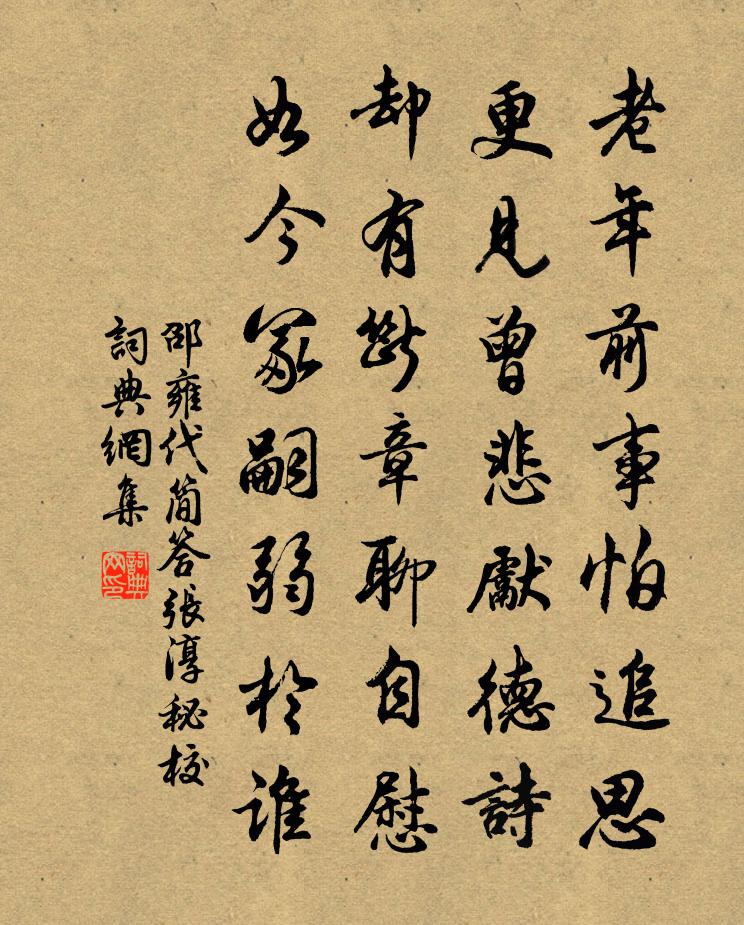 老年前事怕追思
更見曾悲獻德詩
却有斷章聊自慰
如今冢嗣弱於誰
邵雍代簡答張淳秘校
詞典網集
詞典网印